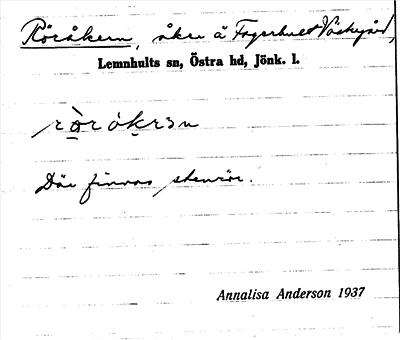 Röråkern, åker å Fagerhult Västregård,
Lemnhults sn, Östra hd, Jönk. l.
ròrókrɜn
Där finnas stenrör.
Annalisa Anderson 1937